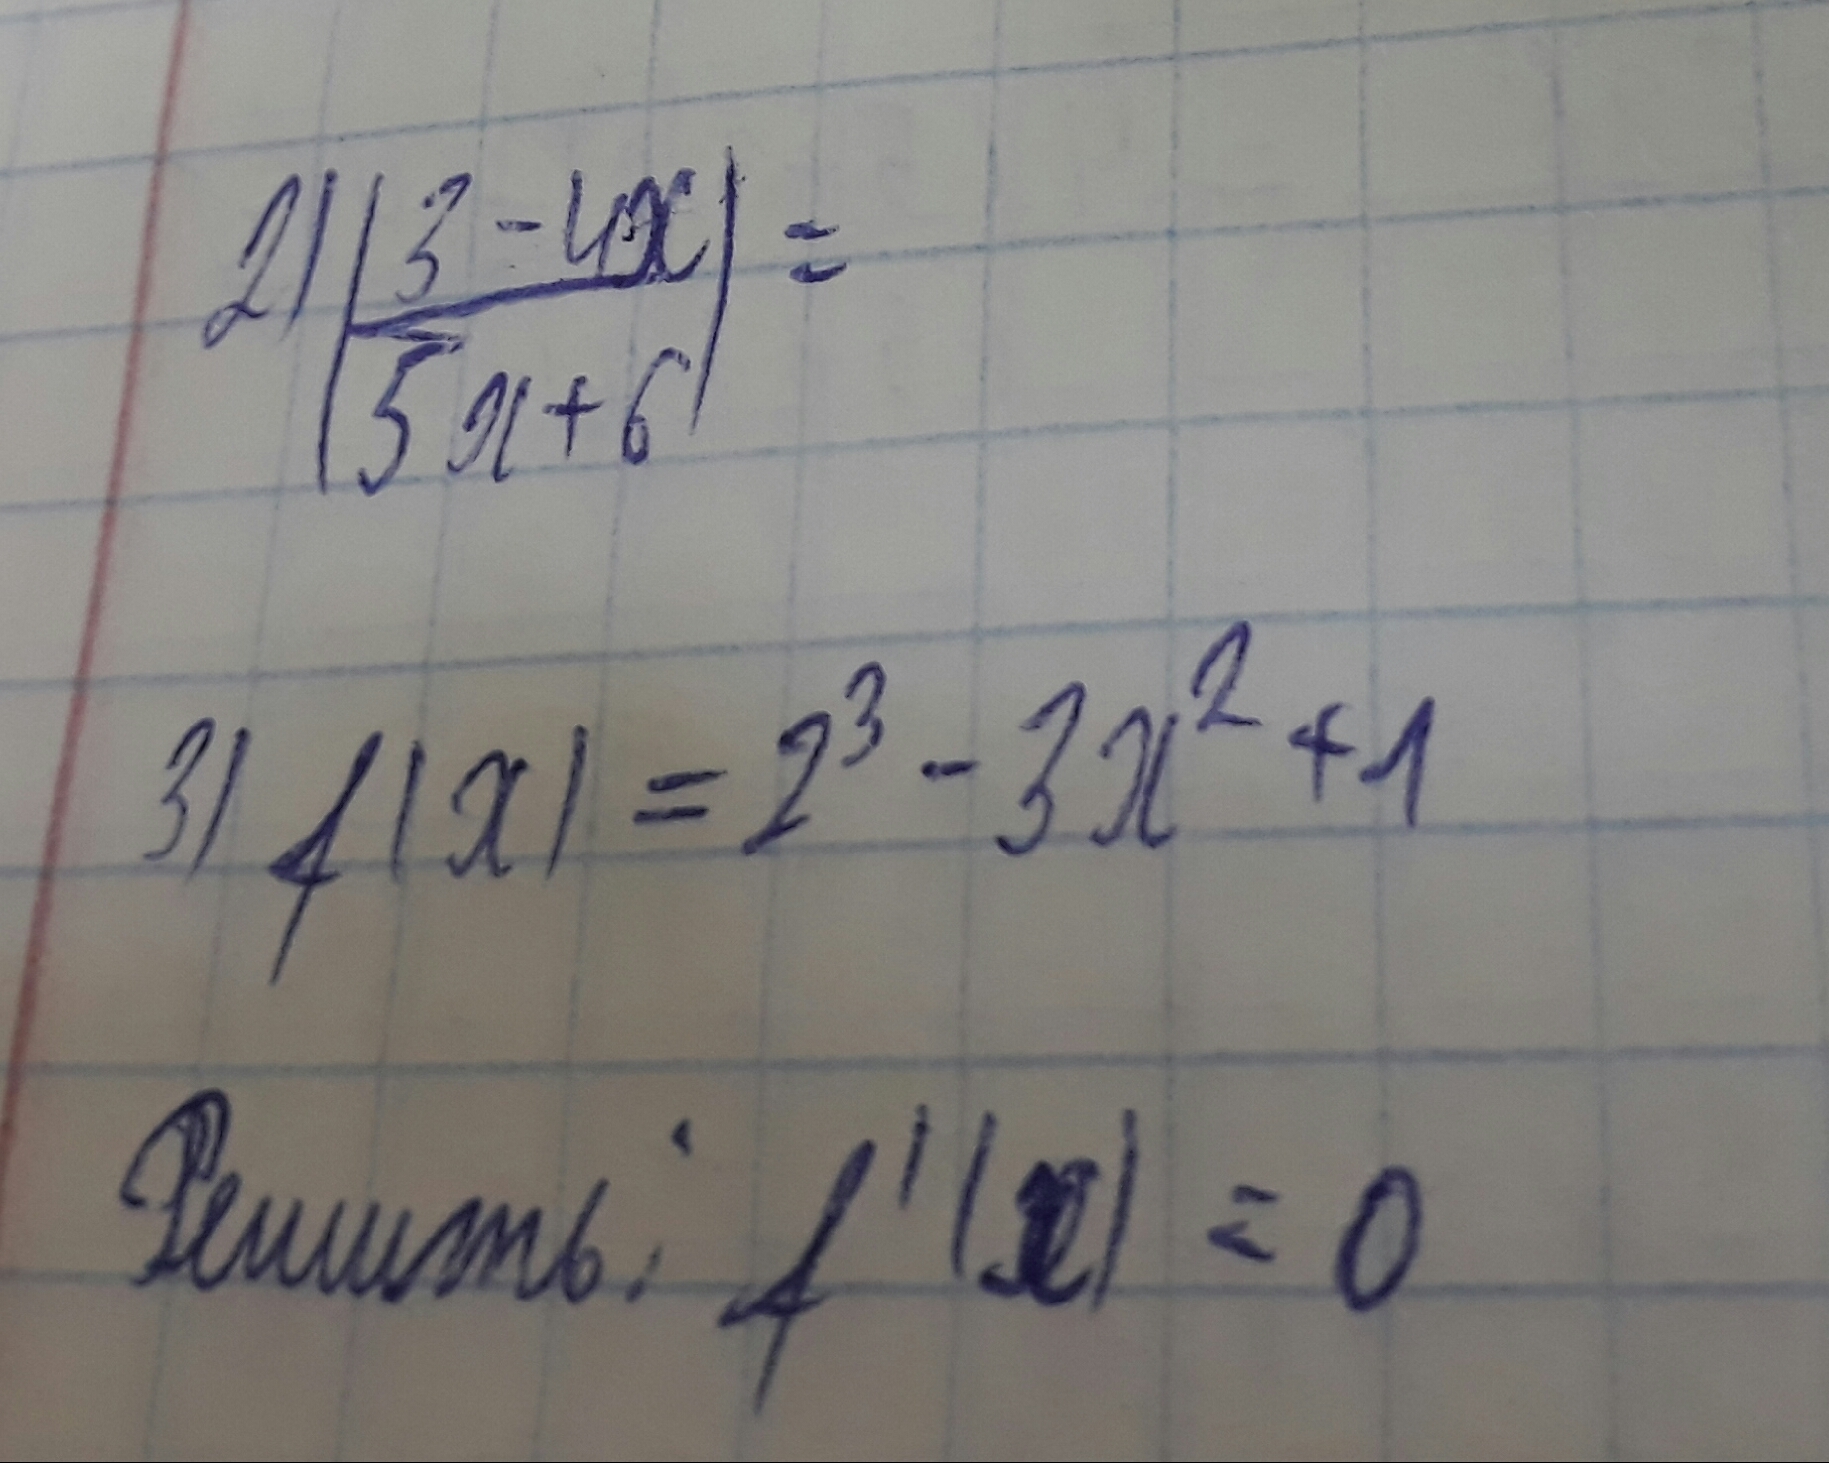 2) |(3 - 4x)/(5x + 6)| =
3) f(x) = 2³ - 3x² + 1
Решить: f'(x) = 0